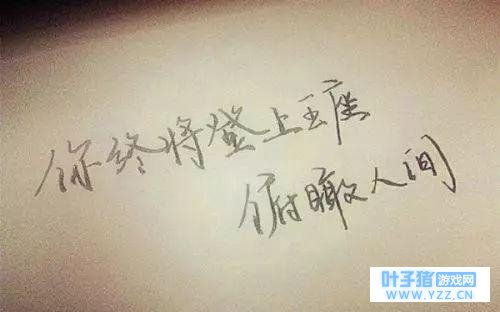 你终将登上王座
俯瞰人间
叶子猪游戏网
WWW.YZZ.CN